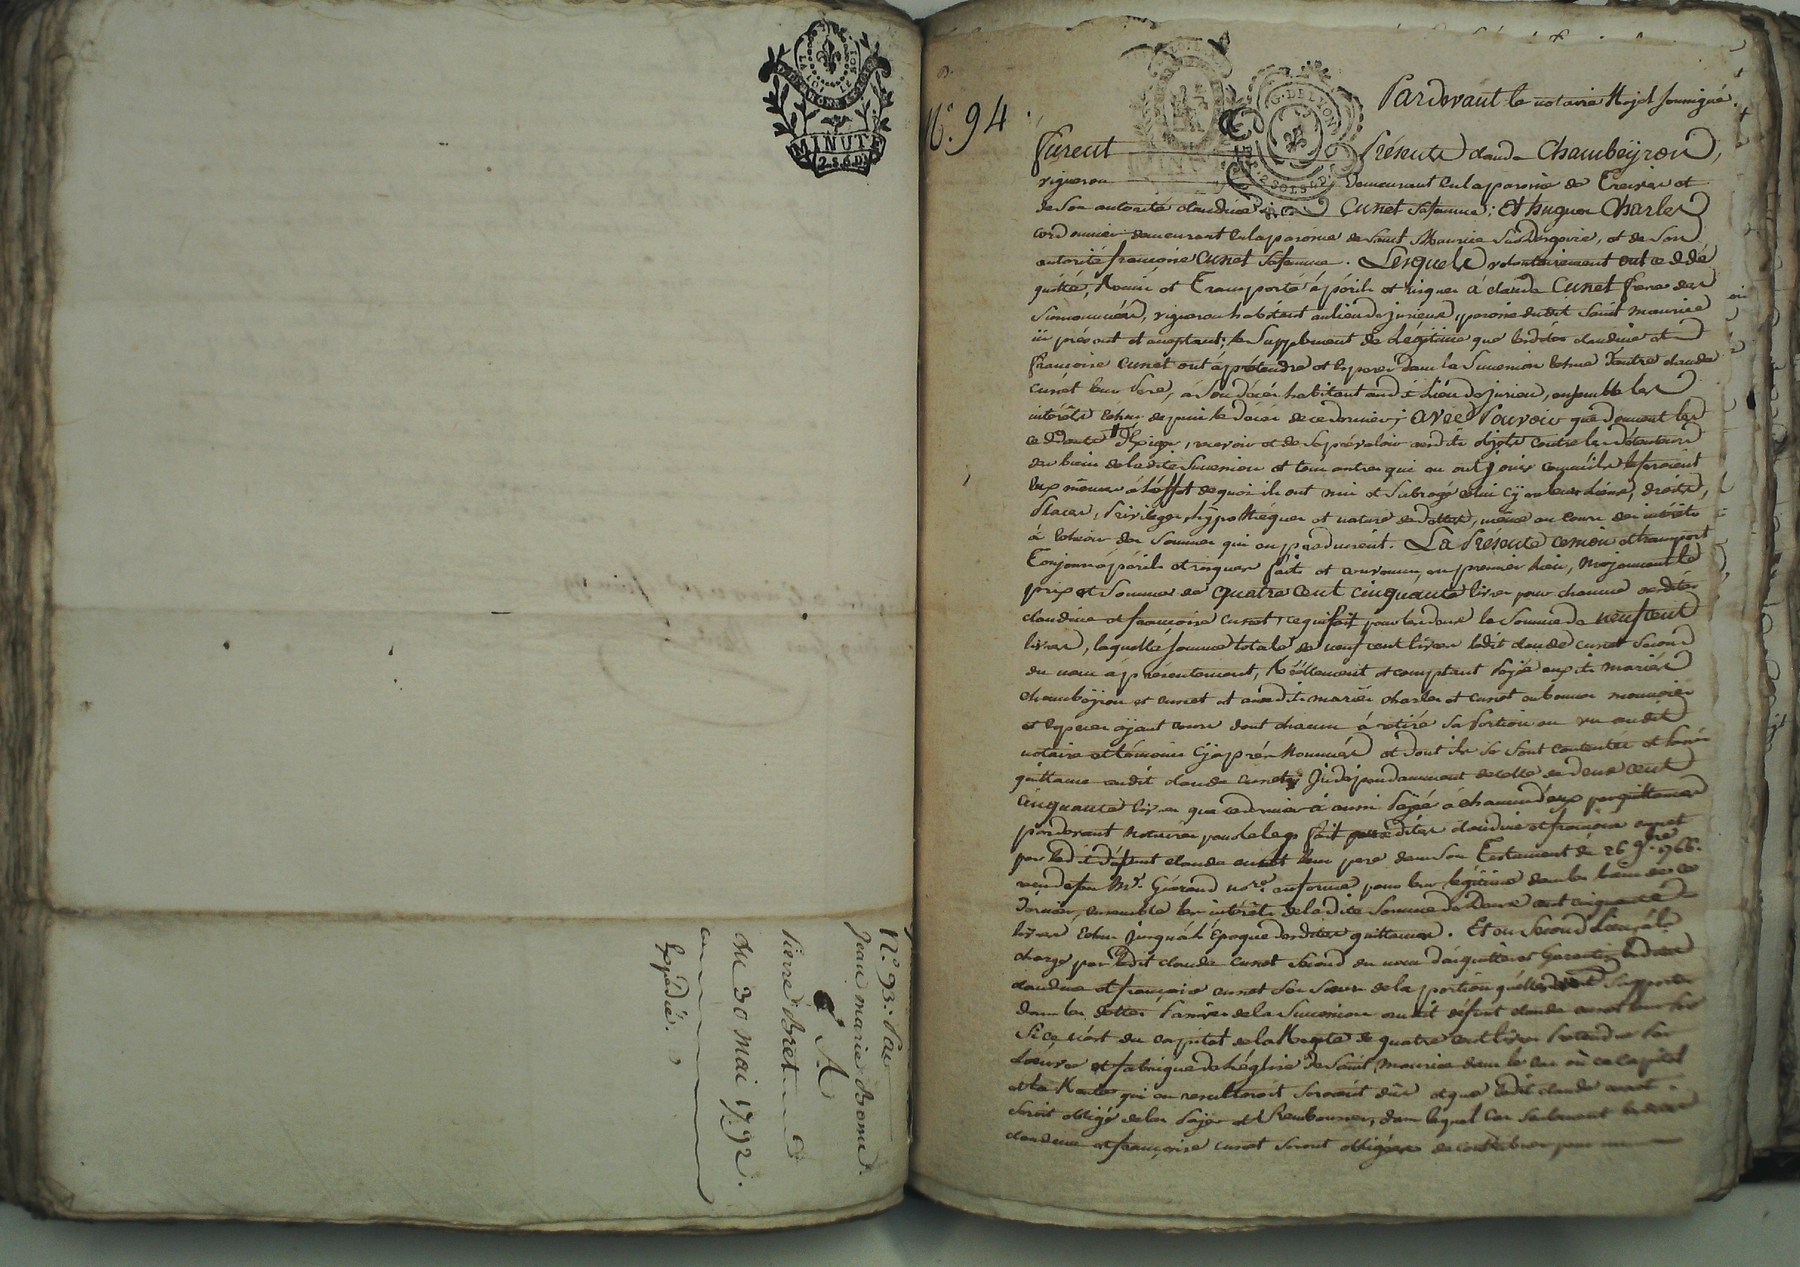 LA LOI LE ROI
MINUTE
2.S.6.D.
N.° 93. Par
jean marie Bonnd
A
Pierre Bret
du 30 mai 1792.
Expédié.
N.° 94
G. DE LYON
2 SOLS 4 D.
Pardevant le notaire Royal soussigné,
furent Présents claude Chambeÿron,
vigneron demeurant en la paroisse de Treives et
de son autorité claudine Cunet sa femme; Et hugues Charles
cordonnier demeurant en la paroisse de Saint Maurice sur Dargoire, et de son
autorité françoise Cunet sa femme. Lesquels volontairement ont cedé
quitté, Remis et Transporté à périls et risques à claude Cunet frere des
Surnommées, vigneron habitant au lieu de jurieux, paroisse dudit Saint maurice
ici présent et acceptant, le Supplément de légitime que lesdites claudine et
françoise Cunet ont à prétendre et espérer dans la Succession échue d'autre claude
cunet leur Pere, à son décès habitant audit Lieu de jurieux, ensemble les
intérêts échus depuis le décès de ce dernier; avec Pouvoir que donnent les
cédants d'Exiger, recevoir et de se prévaloir desdits objets contre les détenteurs
des biens de ladite Succession et tous autres qui en ont joui comme ils le feroient
eux mêmes à l'effet de quoi ils ont mis et subrogé celui cÿ en leurs lieux, droits,
Places, Privileges, hÿpothèques et nature de dettes, même au cours des intérêts
à échoir des Sommes qui en produisent. La Présente cession et transport
Toujours à périls et risques faits et convenus, en premier lieu, moÿennant le
prix et Somme de quatre cent cinquante livres pour chacune desdites
claudine et françoise cunet, ce qui fait pour les deux la Somme de neuf cent
livres, laquelle Somme totale de neuf cent livres ledit claude cunet Second
du nom a présentement, Réellement et comptant Païé auxdits mariés
chambeÿron et cunet et auxdits mariés charles et cunet en bonnes monnoies
et espèces aÿant cours dont chacun à retiré sa Portion au vu dudit
notaire et témoins cÿ après Nommés et dont ils se sont contentés et
quittance audit claude cunet; Indépendamment de celle de deux cent
cinquante livres que ce dernier à aussi Païé à chacun d'eux par quittances
pardevant Notaires pour le legs fait auxdites claudine et françoise cunet
par ledit défunt claude cunet leur pere dans son Testament du 26 9.bre 1766.
M.e Guerand no.re en forme pour leur légitime dans les biens de ce
dernier, ensemble les intérêts de ladite Somme de Deux cent cinquante
livres échus jusqu'à l'Epoque desdites quittances. Et en Second Lieu, à la
charge par ledit claude cunet Second du nom d'acquitter et Garantir lesdites
claudine et françoise cunet ses Sœurs de la portion qu'elles doivent Supporter
dans les dettes Passives de la Succession dudit défunt claude cunet leur Pere
Si ce n'est du capital de la Rente de quatre cent livres Prétendue Par
l'œuvre et fabrique de l'église de Saint Maurice dans le cas où ce capital
et la Rente qui en resulteroit seroient dûs et que ledit claude cunet
seroit obligé de les Païer et Rembourser, dans lequel Cas seulement lesdites
claudine et françoise cunet seront obligées de contribuer pour